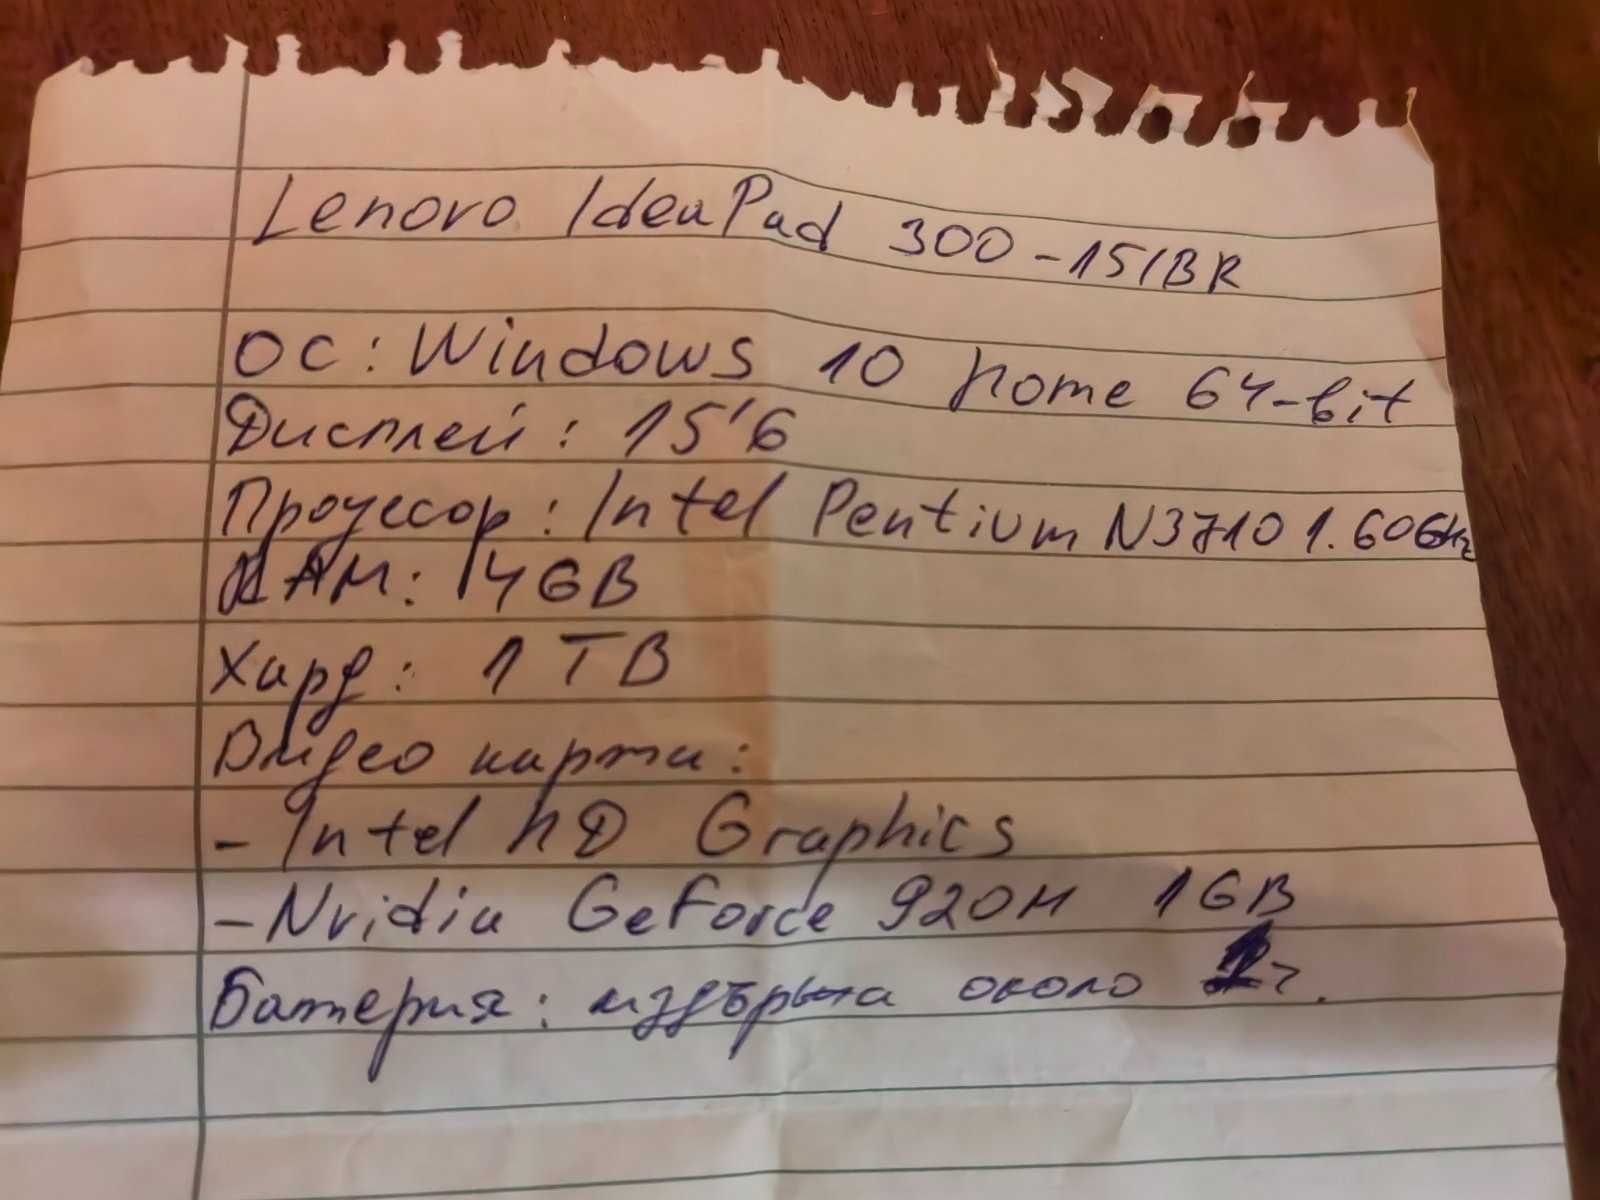 Lenovo IdeaPad 300-15IBR
ОС: Windows 10 home 64-bit
Дисплей: 15'6
Процесор: Intel Pentium N3710 1.60GHz
РАМ: 4GB
Хард: 1 TB
Видео карти:
- Intel HD Graphics
- Nvidia GeForce 920M 1GB
Батерия: издържа около